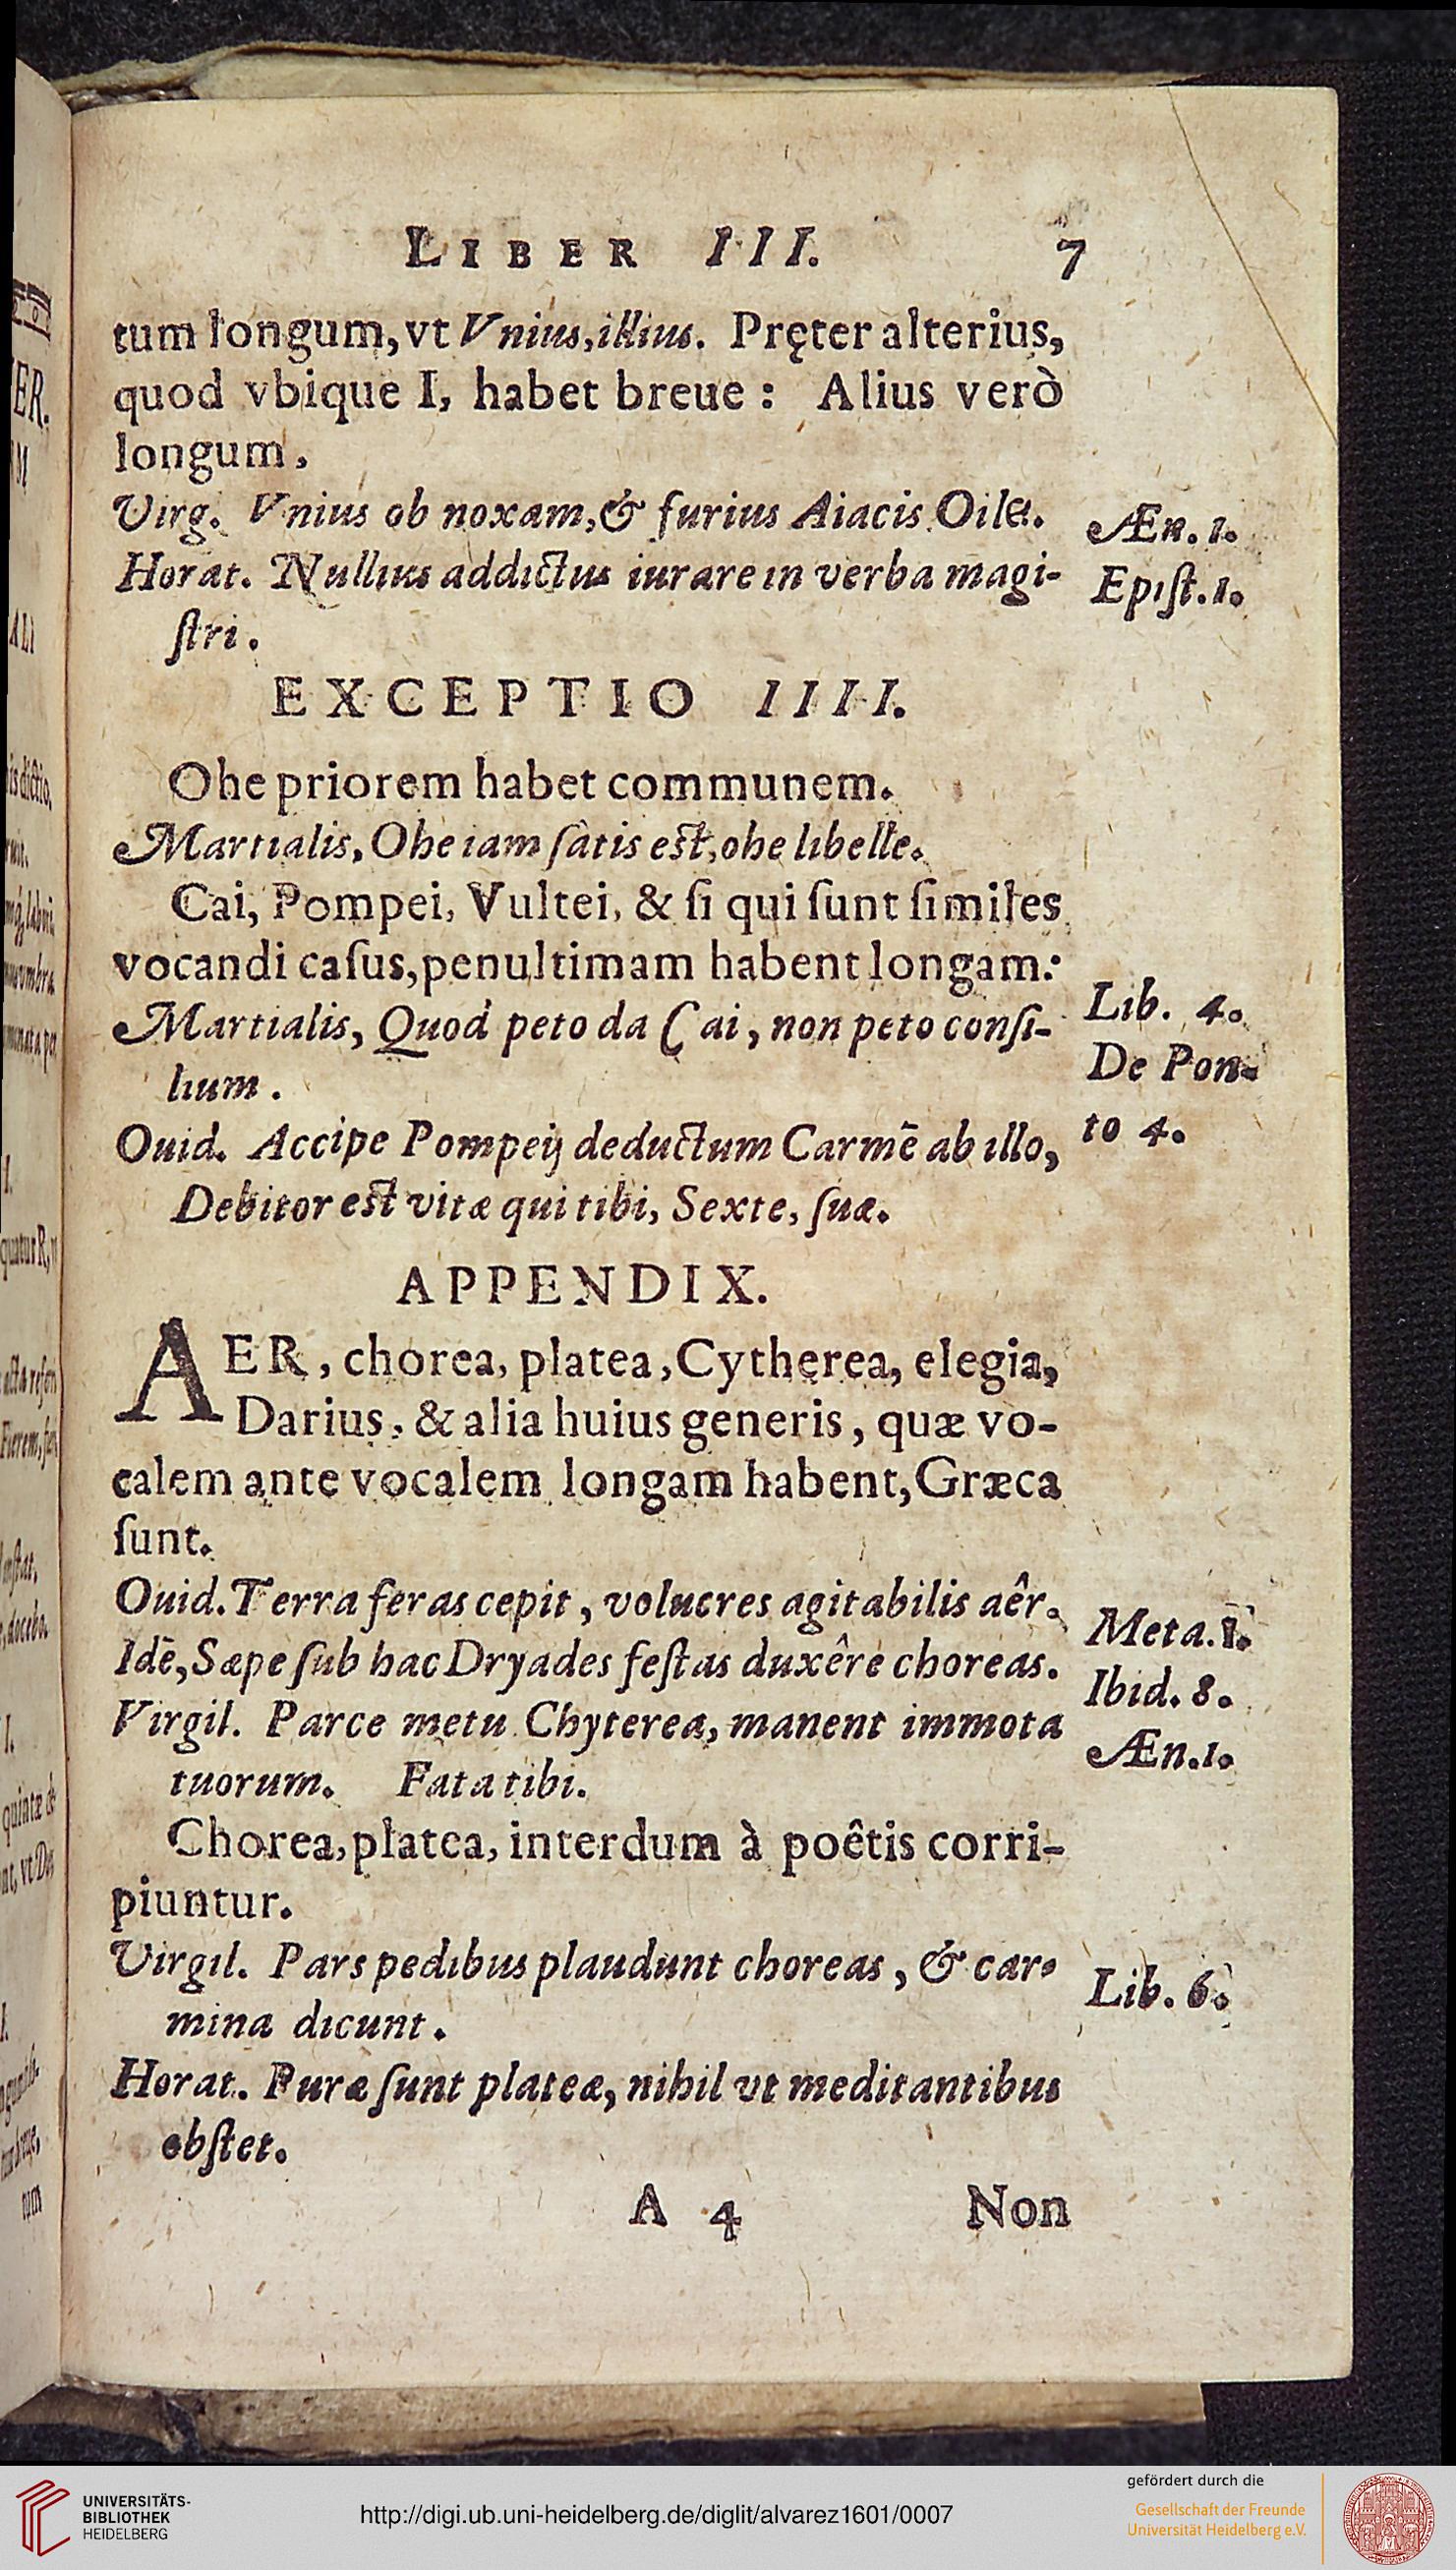 LIBER III. 7
tum longum, vt Vnius, illius. Pręter alterius,
quod vbique I, habet breue : Alius verò
longum.
Virg. Vnius ob noxam, & furius Aiacis Oilei.
Æn. 1.
Horat. Nullius addictus iurare in verba magi-
Epist. 1.
ſtri.
EXCEPTIO IIII.
Ohe priorem habet communem.
Martialis, Ohe iam ſatis est, ohe libelle.
Cai, Pompei, Vultei, & ſi qui ſunt ſimiles
vocandi caſus, penultimam habent longam:
Martialis, Quod peto da Cai, non peto conſi-
Lib. 4.
lium.
De Pon-
Ouid. Accipe Pompeij deductum Carmē ab illo,
to 4.
Debitor est vitæ qui tibi, Sexte, ſuæ.
APPENDIX.
AER, chorea, platea, Cytherea, elegia,
Darius, & alia huius generis, quæ vo-
calem ante vocalem longam habent, Græca
ſunt.
Ouid. Terra feras cepit, volucres agitabilis aêr.
Meta. 1.
Idē, Sæpe ſub hac Dryades feſtas duxêre choreas.
Ibid. 8.
Virgil. Parce metu Chyterea, manent immota
Æn. 1.
tuorum. Fata tibi.
Chorea, platea, interdum à poêtis corri-
piuntur.
Virgil. Pars pedibus plaudunt choreas, & car-
Lib. 6.
mina dicunt.
Horat. Puræ ſunt plateæ, nihil vt meditantibus
obſtet.
A 4 Non
UNIVERSITÄTS-
BIBLIOTHEK
HEIDELBERG
http://digi.ub.uni-heidelberg.de/diglit/alvarez1601/0007
gefördert durch die
Gesellschaft der Freunde
Universität Heidelberg e.V.